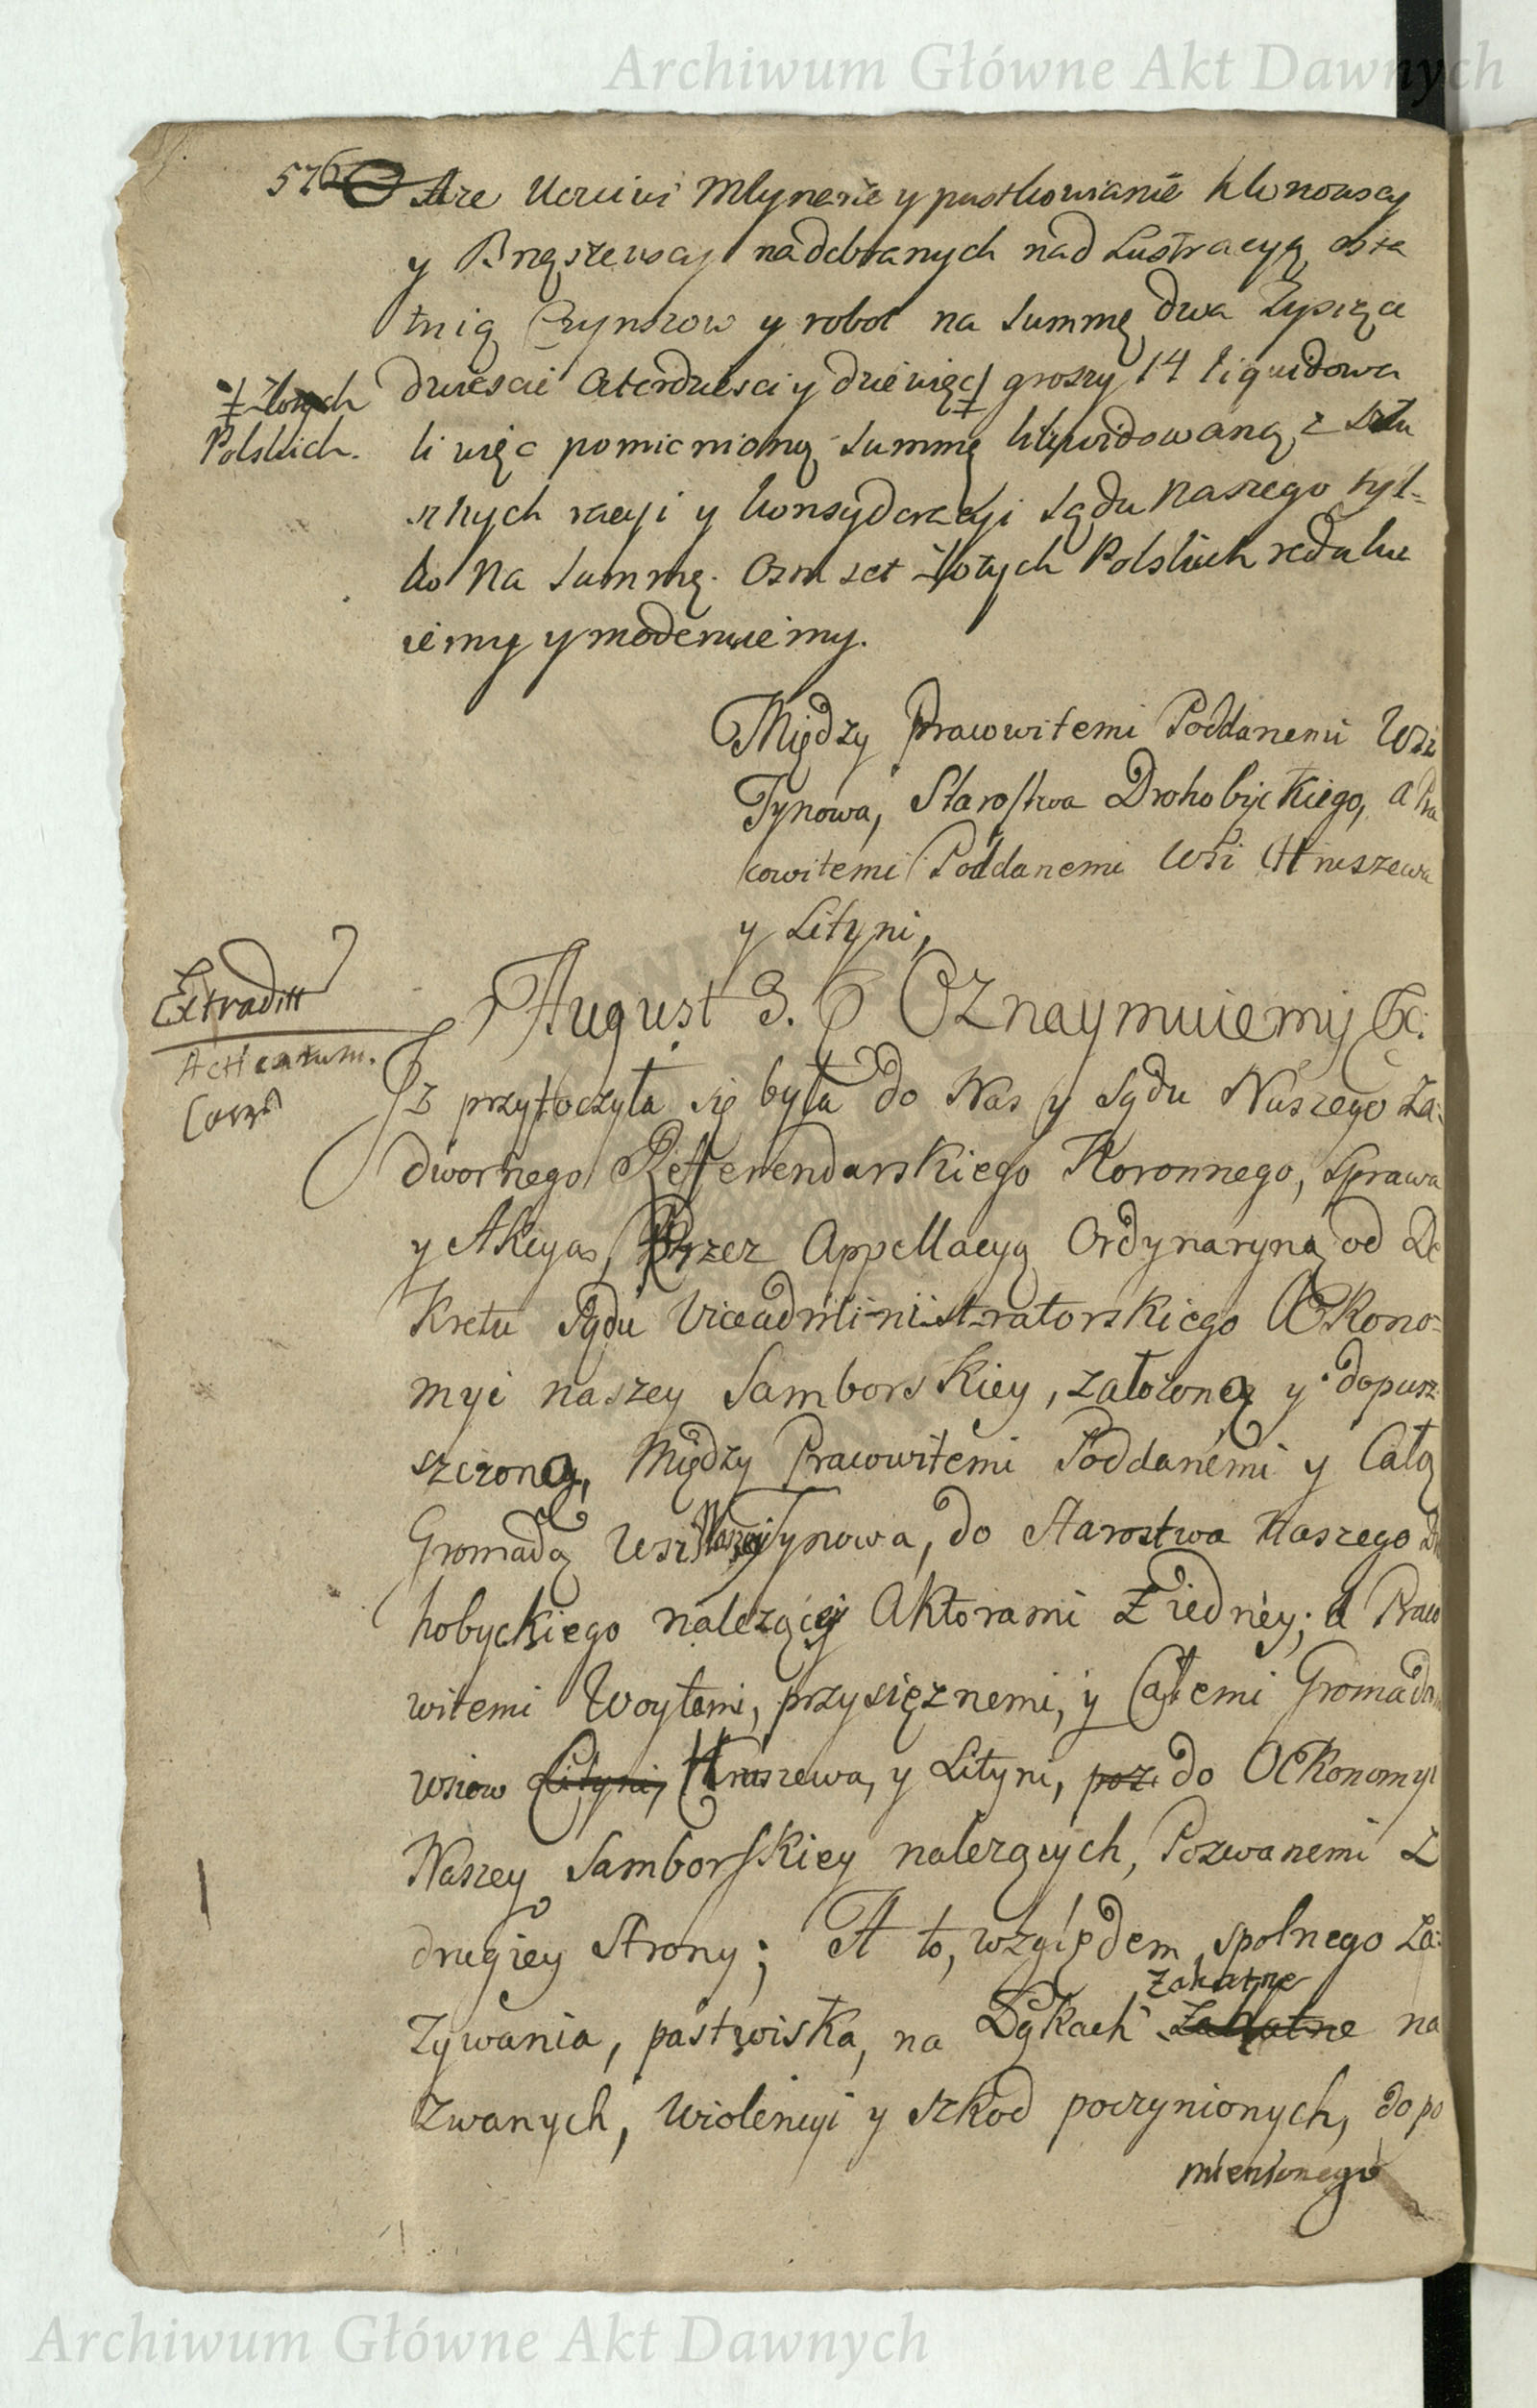 Archiwum Główne Akt Dawnych
576
Aże Uczciwi Młynerie y pustkowianie Klonowscy
y Brzęszewscy nadebranych nad Lustracyą osta
tnią Czynszow y robot na summę dwa Tysiąca
dwiescie czterdziesci y dziewięć ‡ groszy 14 liquidowa
‡ Złotych
Polskich.
li więc pomienioną summę likwidowaną, z słu
sznych racyi y konsyderacyi sądu naszego tyl=
ko na summę osm set złotych Polskich reduku
iemy y moderuiemy.
Między Pracowitemi Poddanemi Wsi
Tynowa, Starostwa Drohobyckiego, a Pra
cowitemi Poddanemi Wsi Hruszewa
y Lityni,
August 3. Oznaymuiemy &c:
Extradit
Acticatum.
Iż przytoczyła się była do Nas y Sądu Naszego Za=
dwornego Refferendarskiego Koronnego, sprawa
y Akcya, Przez Appellacyą Ordynaryną od De
kretu Sądu Viceadministratorskiego Œkono=
myi naszey Samborskiey, założoną y dopusz
szczoną, Między Pracowitemi Poddanemi y Całą
Gromadą Wsi Naszey Tynowa, do Starostwa Naszego D
hobyckiego należącey Aktorami z iedney; a Praco
witemi Woytami, przysiężnemi, y Całemi Gromada
wsiow Lityni, Hruszewa, y Lityni, poz. do Œkonomyi
Naszey Samborskiey należących, Pozwanemi z
drugiey Strony; A to, względem spolnego za=
żywania, pastwiska, na Łąkach Zakatne na
Zakatne
zwanych, wiolencyi y szkod poczynionych, do po
mienionego
Archiwum Główne Akt Dawnych